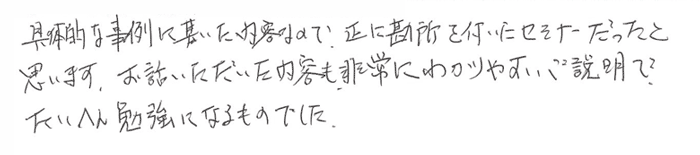 具体的な事例に基いた内容なので、正に勘所を付いたセミナーだったと
思います。お話いただいた内容も非常にわかりやすいご説明で、
たいへん勉強になるものでした。